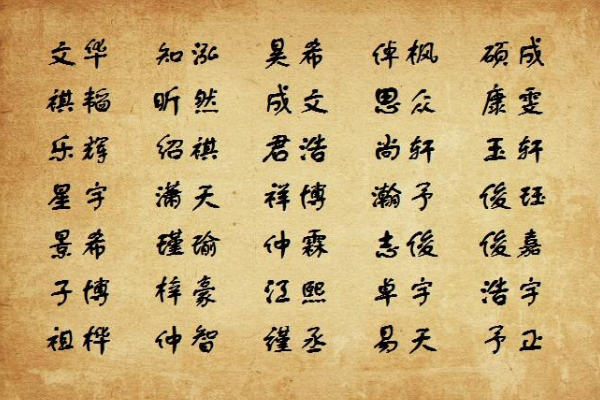 文华 知泓 昊希 倬枫 硕成
祺韬 昕然 成文 思众 康雯
乐辉 绍祺 君浩 尚轩 玉轩
星宇 潇天 祥博 瀚予 俊珏
景希 瑾瑜 仲霖 志俊 俊嘉
子博 梓豪 江熙 卓宇 浩宇
祖桦 仲智 缰丞 易天 予正